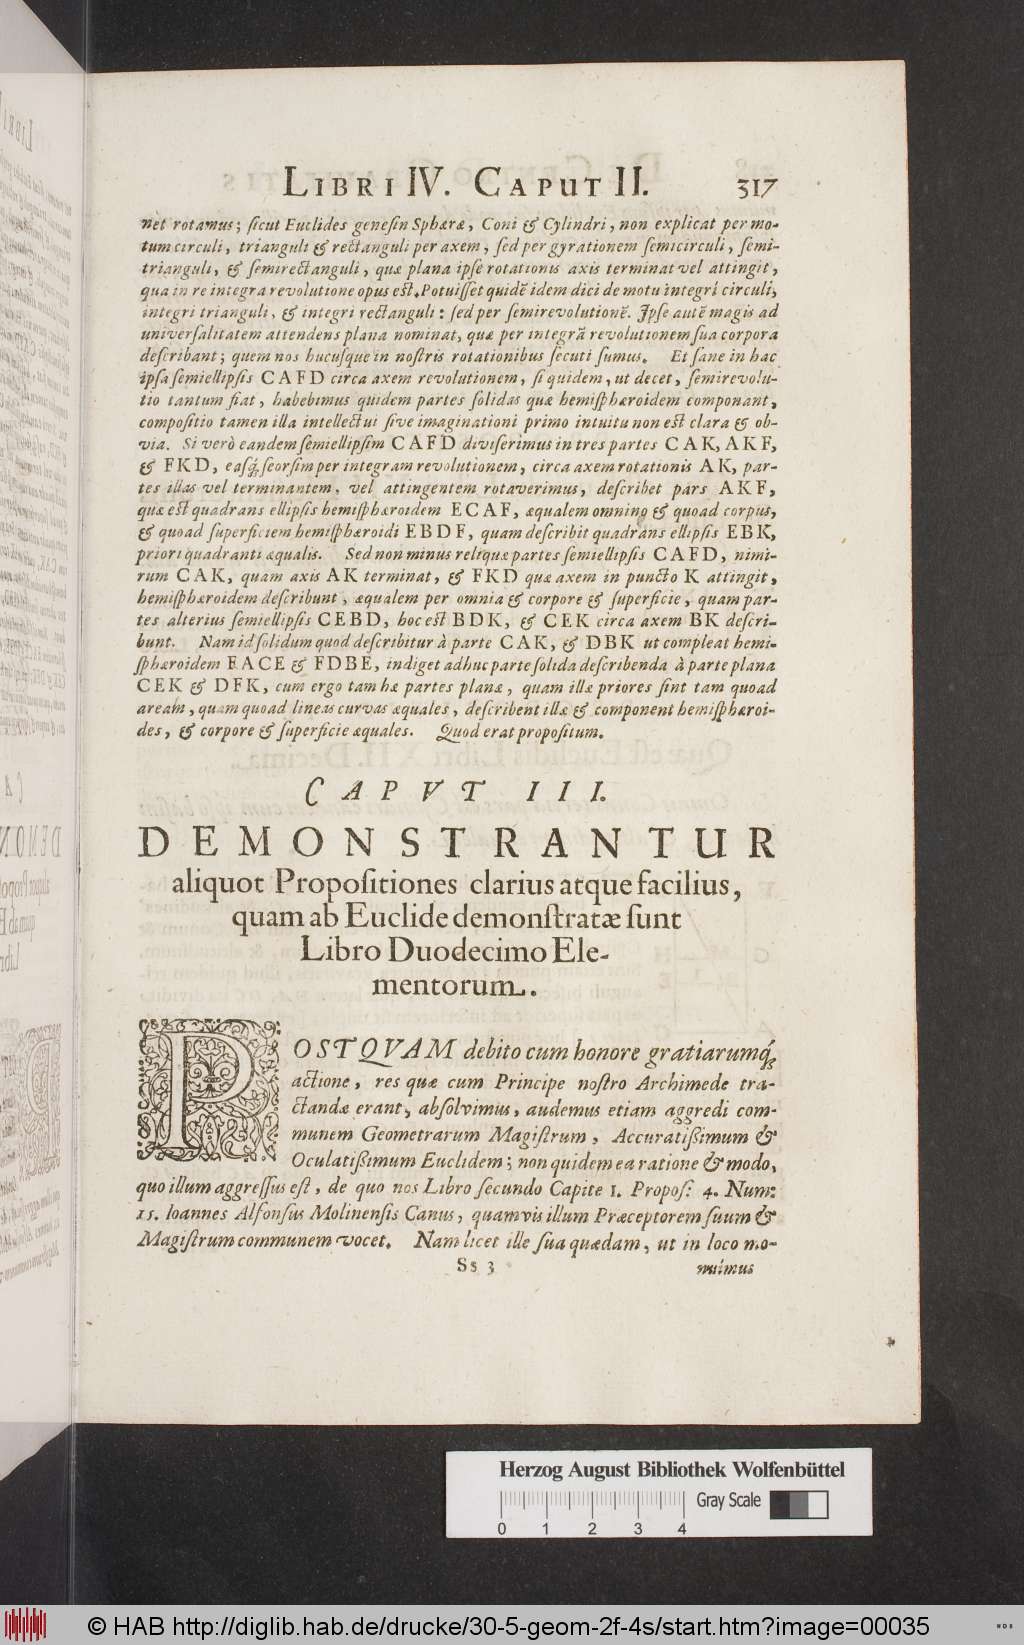 LIBRI IV. CAPUT II. 317
net rotamus; sicut Euclides genesin Sphæræ, Coni & Cylindri, non explicat per mo-
tum circuli, trianguli & rectanguli per axem, sed per gyrationem semicirculi, semi-
trianguli, & semirectanguli, quæ plana ipse rotationis axis terminat vel attingit,
qua in re integra revolutione opus est. Potuisset quidẽ idem dici de motu integri circuli,
integri trianguli, & integri rectanguli: sed per semirevolutionẽ. Ipse autẽ magis ad
universalitatem attendens plana nominat, quæ per integrã revolutionem sua corpora
describant; quem nos hucusque in nostris rotationibus secuti sumus. Et sane in hac
ipsa semiellipsis CAFD circa axem revolutionem, si quidem, ut decet, semirevolu-
tio tantum fiat, habebimus quidem partes solidas quæ hemisphæroidem componant,
compositio tamen illa intellectui sive imaginationi primo intuitu non est clara & ob-
via. Si verò eandem semiellipsim CAFD diviserimus in tres partes CAK, AKF,
& FKD, easq́ seorsim per integram revolutionem, circa axem rotationis AK, par-
tes illas vel terminantem, vel attingentem rotaverimus, describet pars AKF,
quæ est quadrans ellipsis hemisphæroidem ECAF, æqualem omnino & quoad corpus,
& quoad superficiem hemisphæroidi EBDF, quam describit quadrans ellipsis EBK,
priori quadranti æqualis. Sed non minus reliquæ partes semiellipsis CAFD, nimi-
rum CAK, quam axis AK terminat, & FKD quæ axem in puncto K attingit,
hemisphæroidem describunt, æqualem per omnia & corpore & superficie, quam par-
tes alterius semiellipsis CEBD, hoc est BDK, & CEK circa axem BK descri-
bunt. Nam id solidum quod describitur à parte CAK, & DBK ut compleat hemi-
sphæroidem FACE & FDBE, indiget adhuc parte solida describenda à parte plana
CEK & DFK, cum ergo tam hæ partes planæ, quam illæ priores sint tam quoad
aream, quam quoad lineas curvas æquales, describent illæ & component hemisphæroi-
des, & corpore & superficie æquales. Quod erat propositum.
CAPVT III.
DEMONSTRANTUR
aliquot Propositiones clarius atque facilius,
quam ab Euclide demonstratæ sunt
Libro Duodecimo Ele-
mentorum.
POSTQVAM debito cum honore gratiarumq́
actione, res quæ cum Principe nostro Archimede tra-
ctandæ erant, absolvimus, audemus etiam aggredi com-
munem Geometrarum Magistrum, Accuratißimum &
Oculatißimum Euclidem; non quidem ea ratione & modo,
quo illum aggressus est, de quo nos Libro secundo Capite 1. Propos: 4. Num:
15. Ioannes Alfonsus Molinensis Canus, quamvis illum Præceptorem suum &
Magistrum communem vocet. Nam licet ille sua quædam, ut in loco mo-
Ss 3 nuimus
Herzog August Bibliothek Wolfenbüttel
Gray Scale
0 1 2 3 4
© HAB http://diglib.hab.de/drucke/30-5-geom-2f-4s/start.htm?image=00035